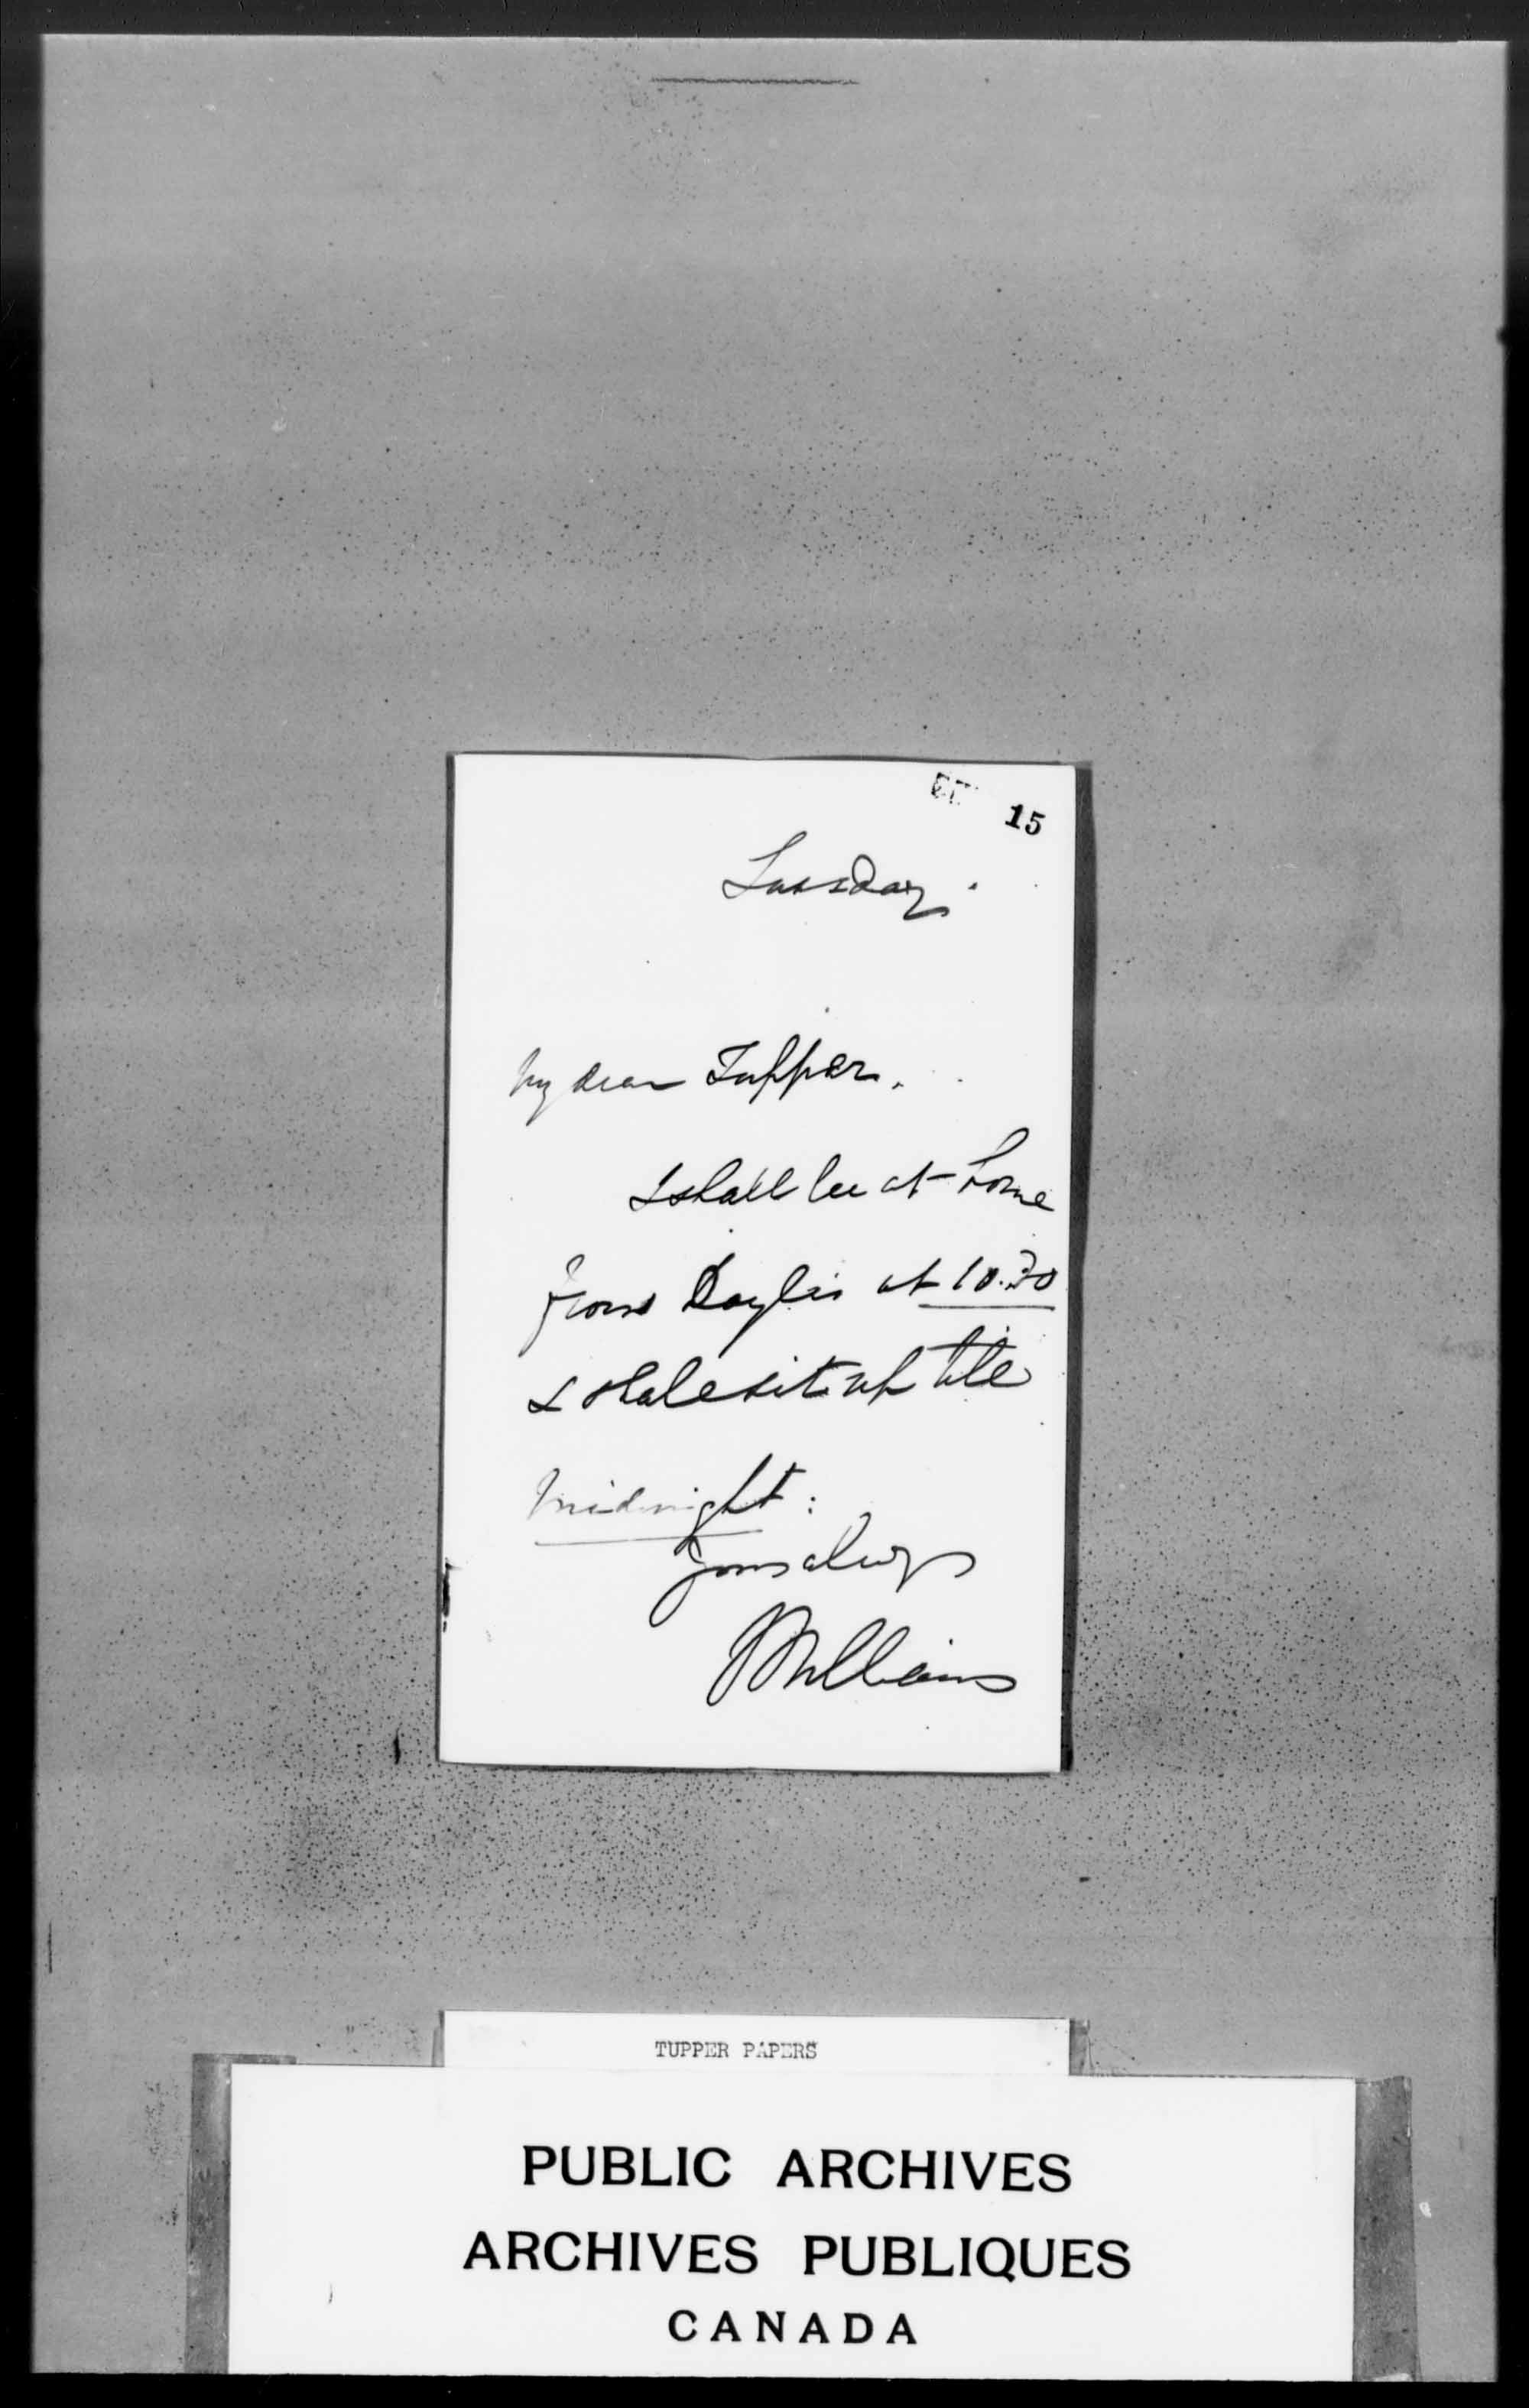 15
Tuesday.
My dear Tupper,
I shall be at home
from Doyles at 10.30
& shall sit up till
Midnight:
Yours always
Williams
TUPPER PAPERS
PUBLIC ARCHIVES
ARCHIVES PUBLIQUES
CANADA